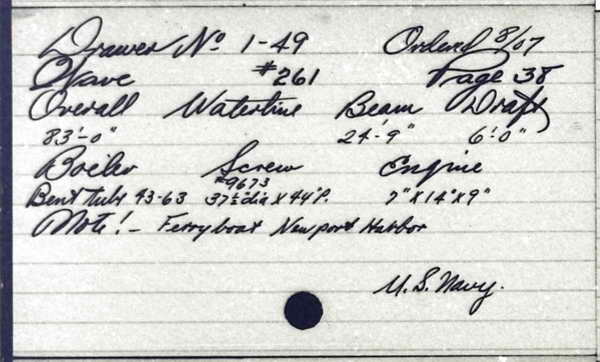 Drawer No 1-49 Ordered 8/07
Wave #261 Page 38
Overall Waterline Beam Draft
83'-0" 24'-9" 6'-0"
Boiler Screw Engine
#9673
Bent tube 43-63 37½"dia x 44"P. 7"x14"x9"
Note! - Ferryboat Newport Harbor
U.S. Navy.